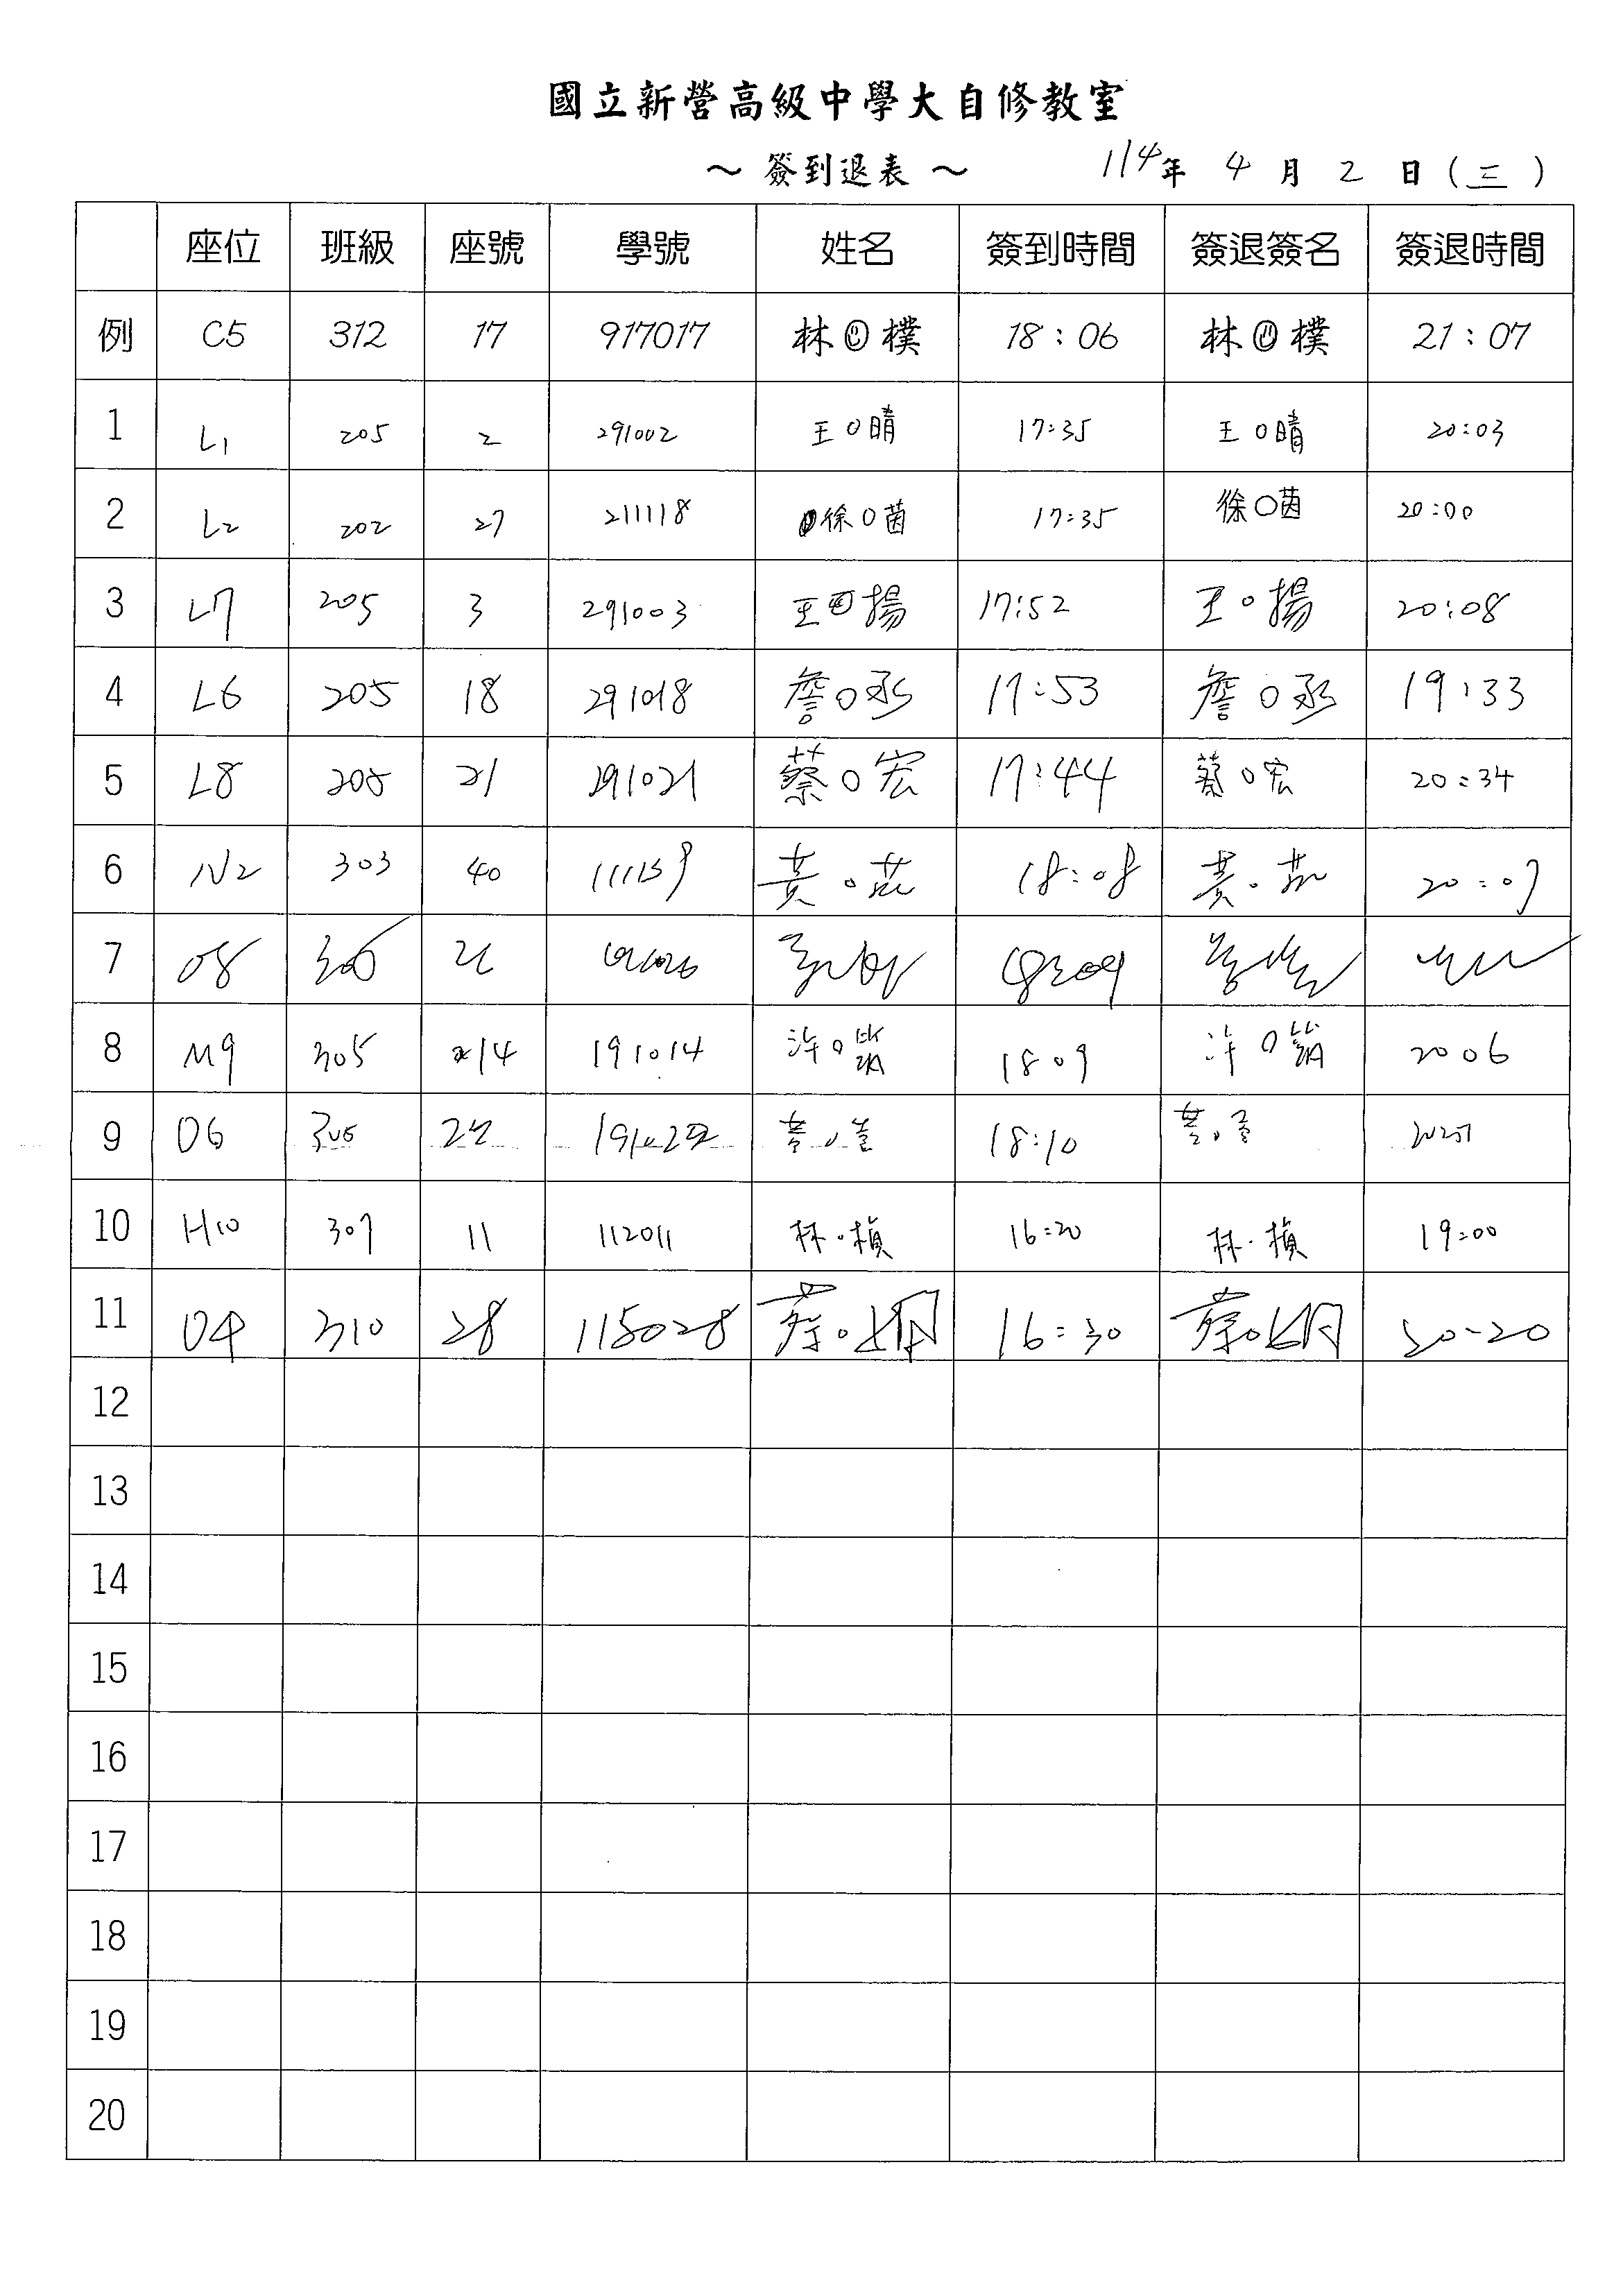 國立新營高級中學大自修教室
～ 簽到退表 ～ 114年 4 月 2 日 (三)
座位 班級 座號 學號 姓名 簽到時間 簽退簽名 簽退時間
例 C5 312 17 917017 林 樸 18:06 林 樸 21:07
1 L1 205 2 291002 王O晴 17:35 王O晴 20:03
2 L2 202 27 211118 徐O茵 17:35 徐O茵 20:00
3 L7 205 3 291003 王 揚 17:52 王O揚 20:08
4 L6 205 18 291018 詹O丞 17:53 詹O丞 19:33
5 L8 205 21 291021 蔡O宏 17:44 蔡O宏 20:34
6 N2 303 40 黃O 18:08 黃O 20:07
7 O8
8 M9 305 14 191014 許O 1809 許O 2006
9 O6 305 18:10
10 H10 307 11 112011 林.楨 16:20 林.楨 19:00
11 O4 310 28 115028 蔡O 16:30 蔡O 20-20
12
13
14
15
16
17
18
19
20